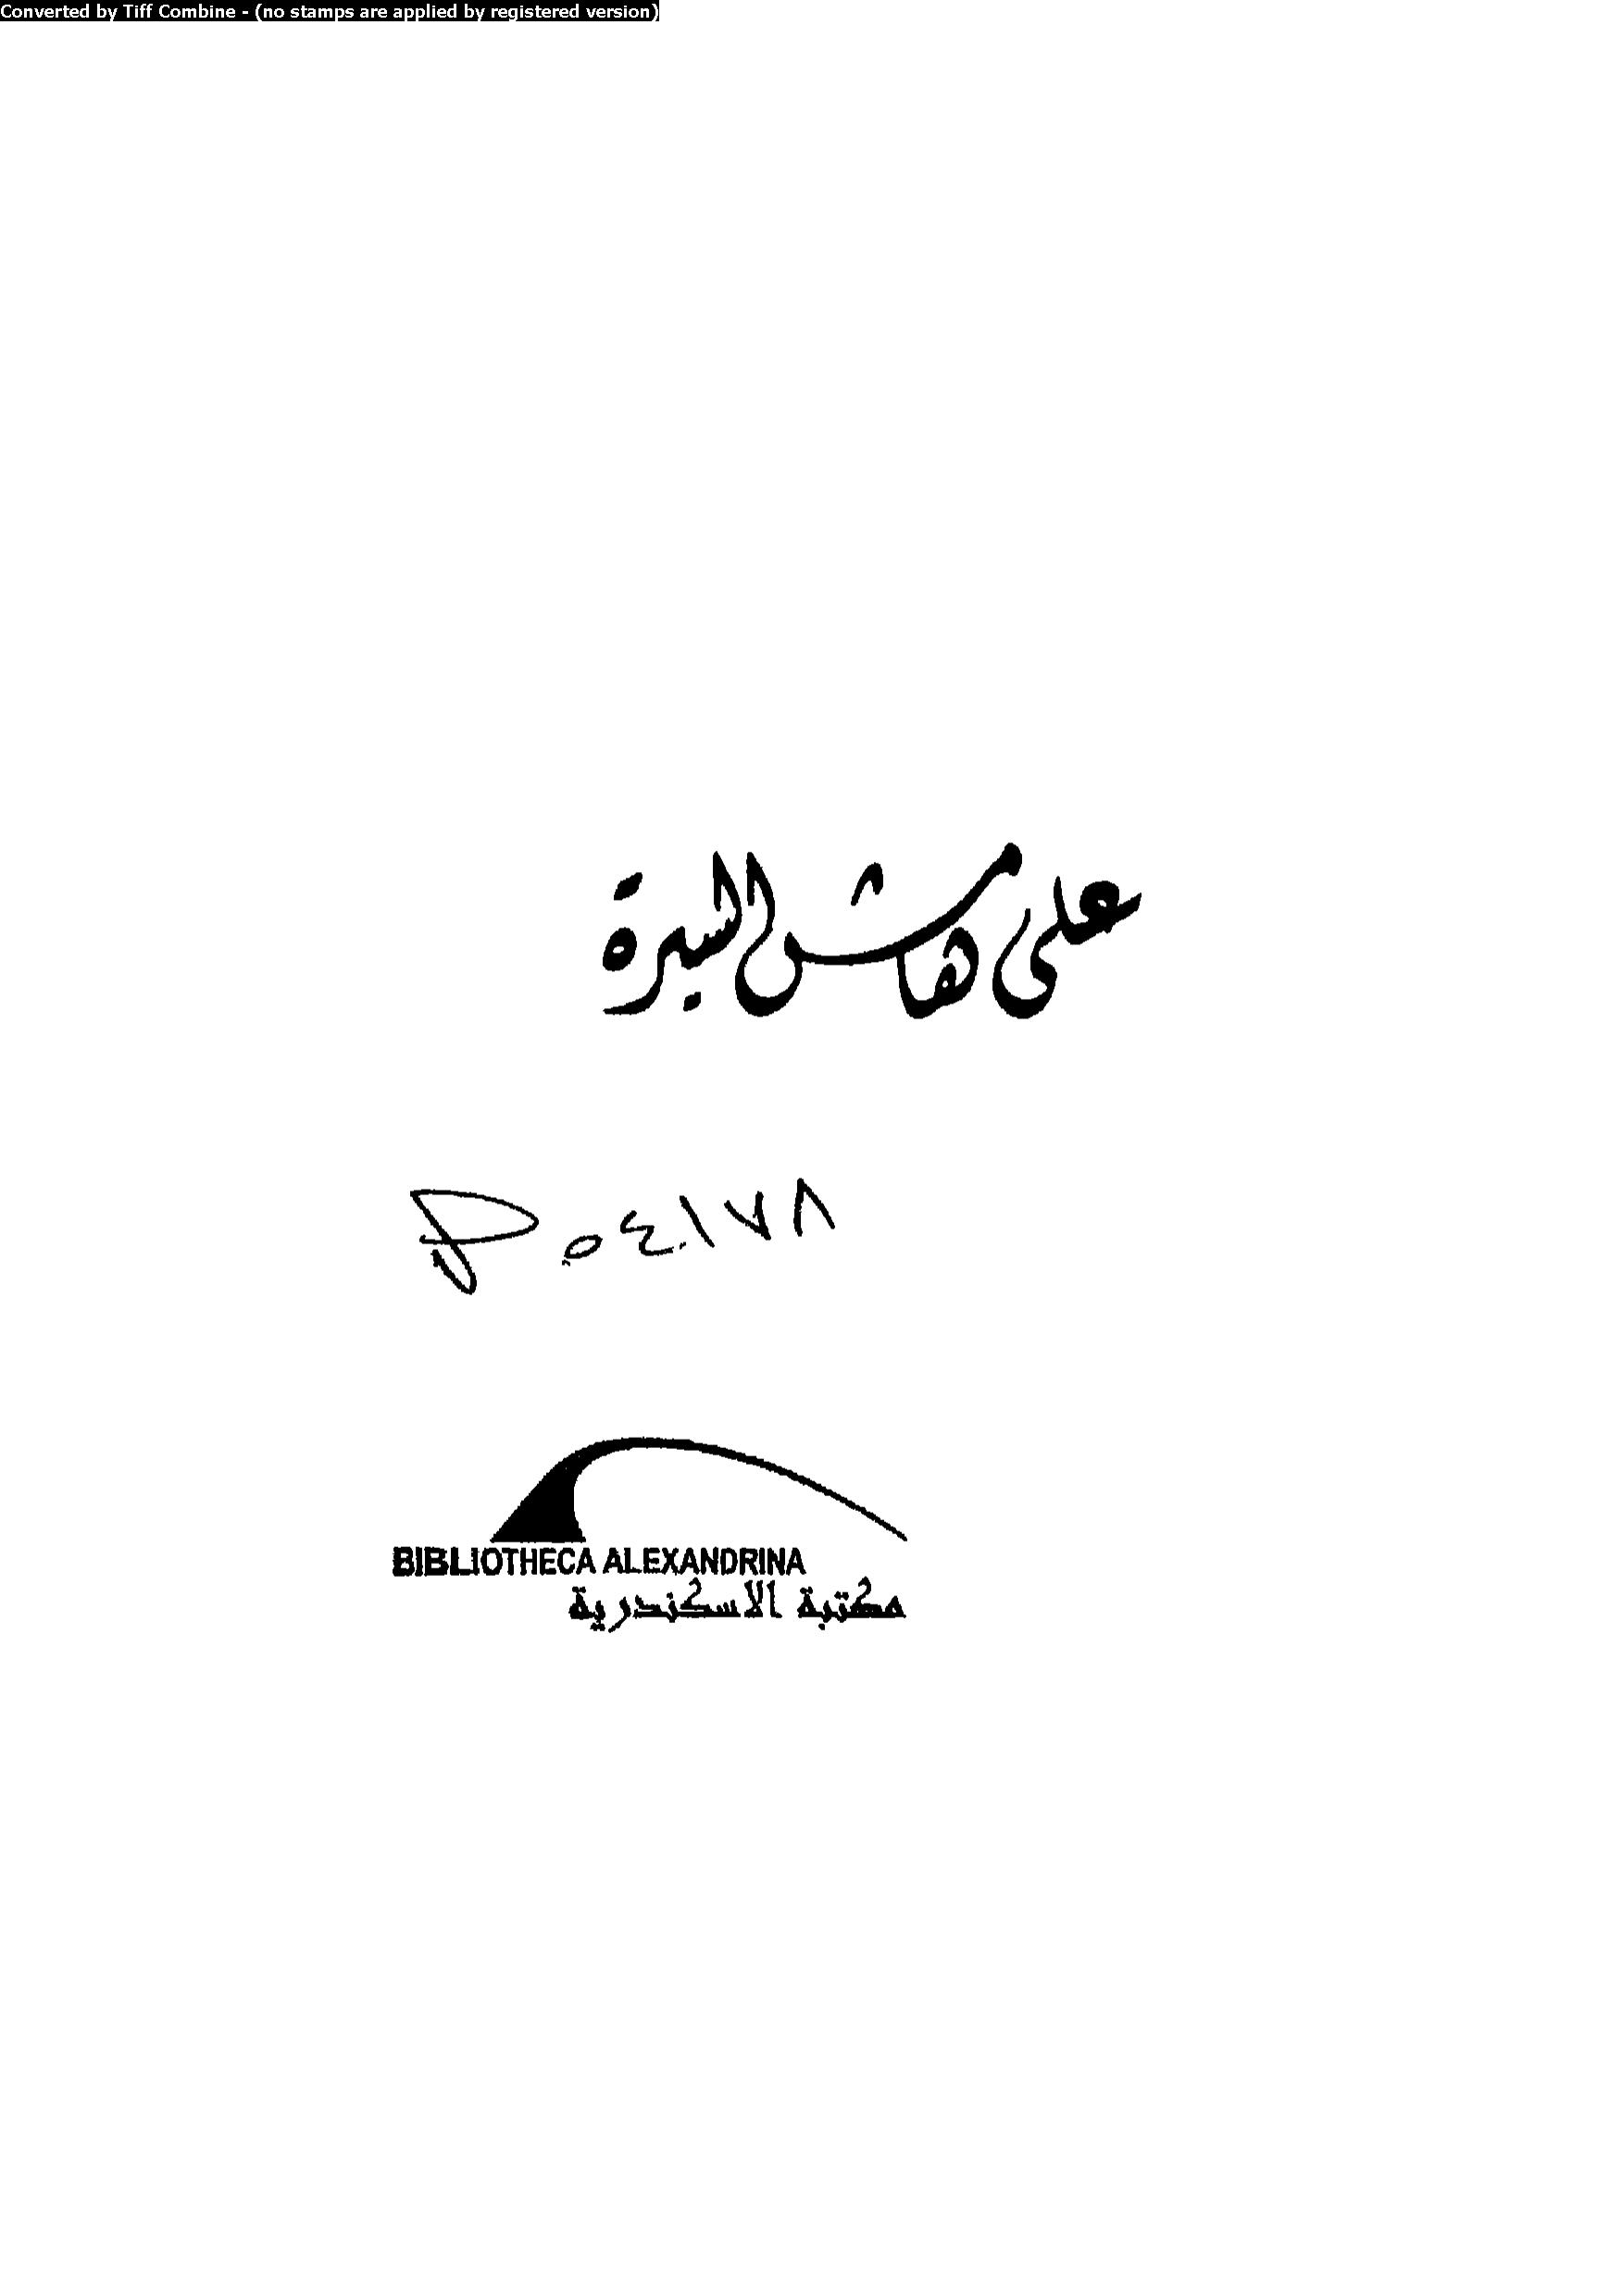 Converted by Tiff Combine - (no stamps are applied by registered version)
على هامش السيرة
٥٤١٧٨
BIBLIOTHECA ALEXANDRINA
مكتبة الاسكندرية